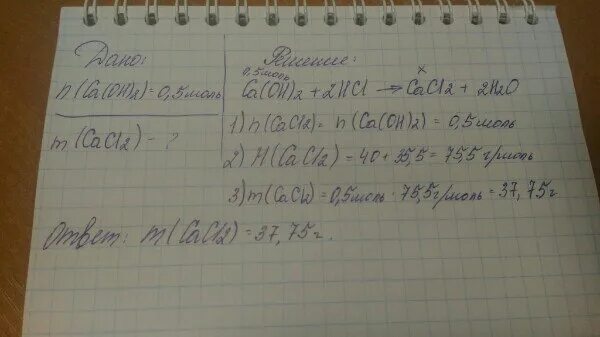 Дано:
n(Ca(OH)2)=0,5моль
m(CaCl2) - ?
Решение:
0,5моль x
Ca(OH)2 + 2HCl → CaCl2 + 2H2O
1) n(CaCl2) = n(Ca(OH)2) = 0,5моль
2) M(CaCl2) = 40 + 35,5 = 75,5 г/моль
3) m(CaCl2) = 0,5моль · 75,5г/моль = 37,75г
Ответ: m(CaCl2) = 37,75г.